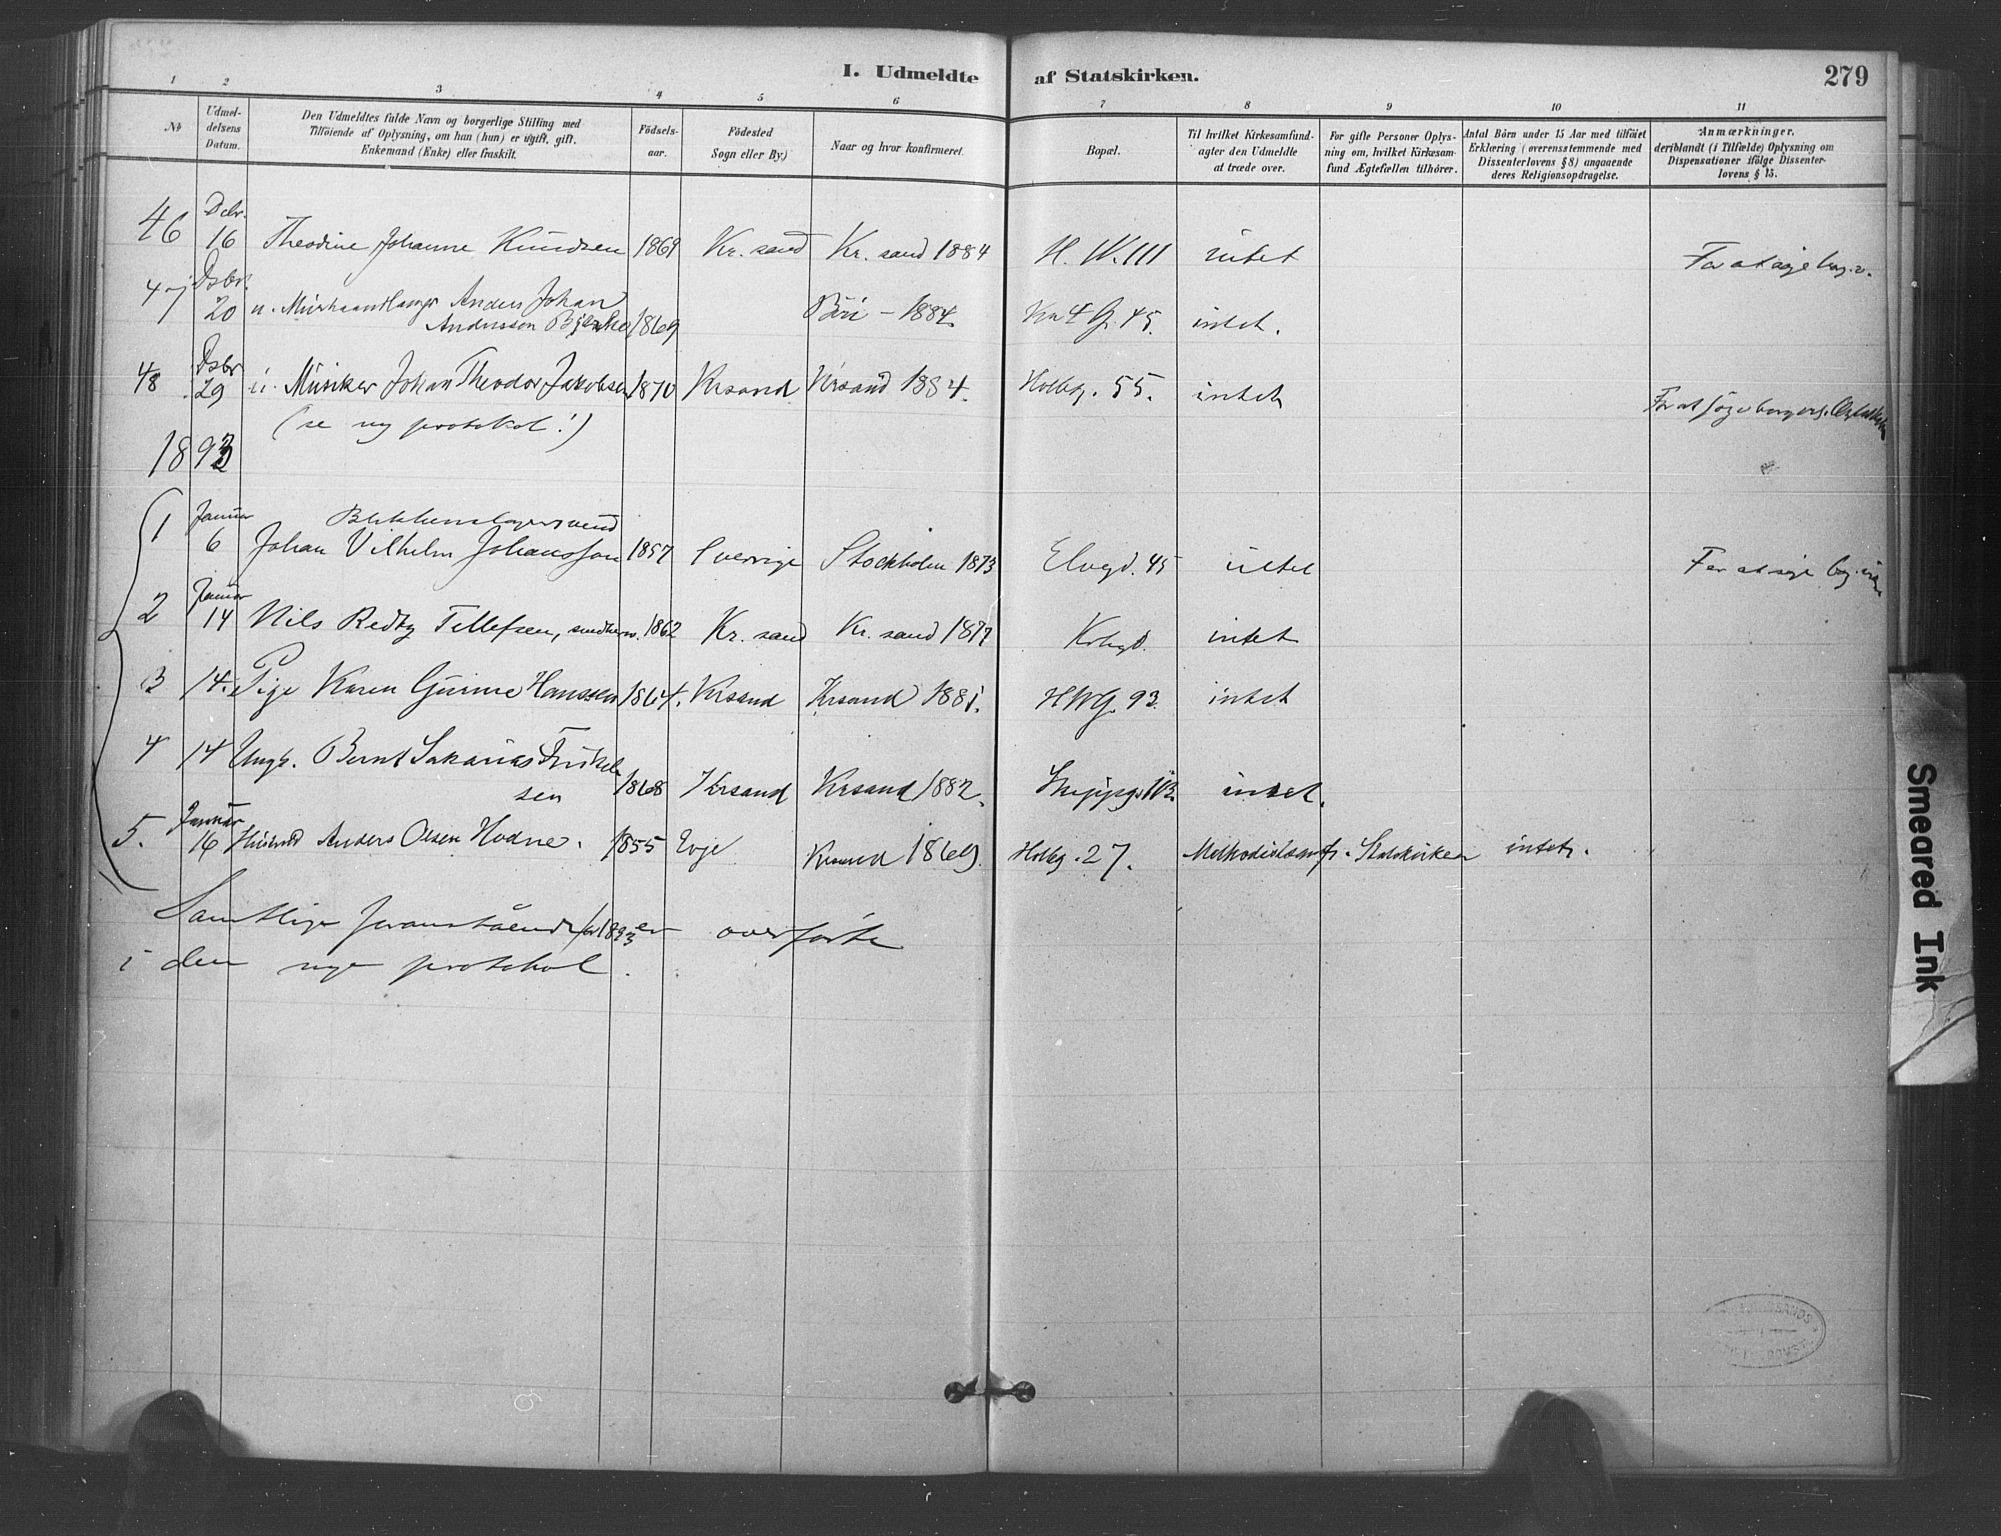 I. Udmeldte af Statskirken.
279
1 2 3 4 5 6 7 8 9 10 11
№
Udmel-
delsens
Datum.
Den Udmeldtes fulde Navn og borgerlige Stilling med
Tilføiende af Oplysning, om han (hun) er ugift, gift,
Enkemand (Enke) eller fraskilt.
Fødsels-
aar.
Fødested
Sogn eller By.)
Naar og hvor konfirmeret.
Bopæl.
Til hvilket Kirkesamfund-
agter den Udmeldte
at træde over.
For gifte Personer Oplys-
ning om, hvilket Kirkesam-
fund Ægtefællen tilhører.
Antal Børn under 15 Aar med tilføiet
Erklæring (overensstemmende med
Dissenterlovens § 8) angaaende
deres Religionsopdragelse.
Anmærkninger,
deriblandt (i Tilfælde) Oplysning om
Dispensationer ifølge Dissenter-
lovens § 15.
46 Dcbr. 16 Theodine Johanne Knudsen 1869 Kr. sand Kr. sand 1884 H. W. 111 intet For at søge
47 Dsbr. 20 u. Murhaandlanger Anders Johan
Andersson 1869 1884. 45. intet.
48 Dsbr 29 u. Musiker Johan Theodor Jakobsen 1870 Krsand Krsand 1884. Holbg. 55. intet For at søge
(se ny protokol!)
1893
Blikkenslagersvend
1 Januar 6 Johan Vilhelm Johansson 1857 Sverrige Stockholm 1873 Elvegd. 45 intet For at søge
2 Januar 14 Nils Redby Tellefsen, 1862 Kr. sand Kr. sand 1877 intet
3 14. Pige Karen Gurine Hanssen 1864. Krsand Krsand 1881. HWG. 93. intet
4 14 Ungk. Bernt Sakarias
sen 1868 Krsand Krsand 1882. intet.
5. Januar 16 Anders Olsen Hodne. 1855 Evje Krsand 1869. Holbg. 27. Methodistsamf. Statskirken intet.
Samtlige foranstående for 1893 er overførte
i den nye protokol.
Smeared Ink